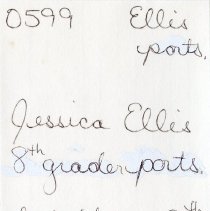 0599 Ellis
ports.
Jessica Ellis
8th grader ports.